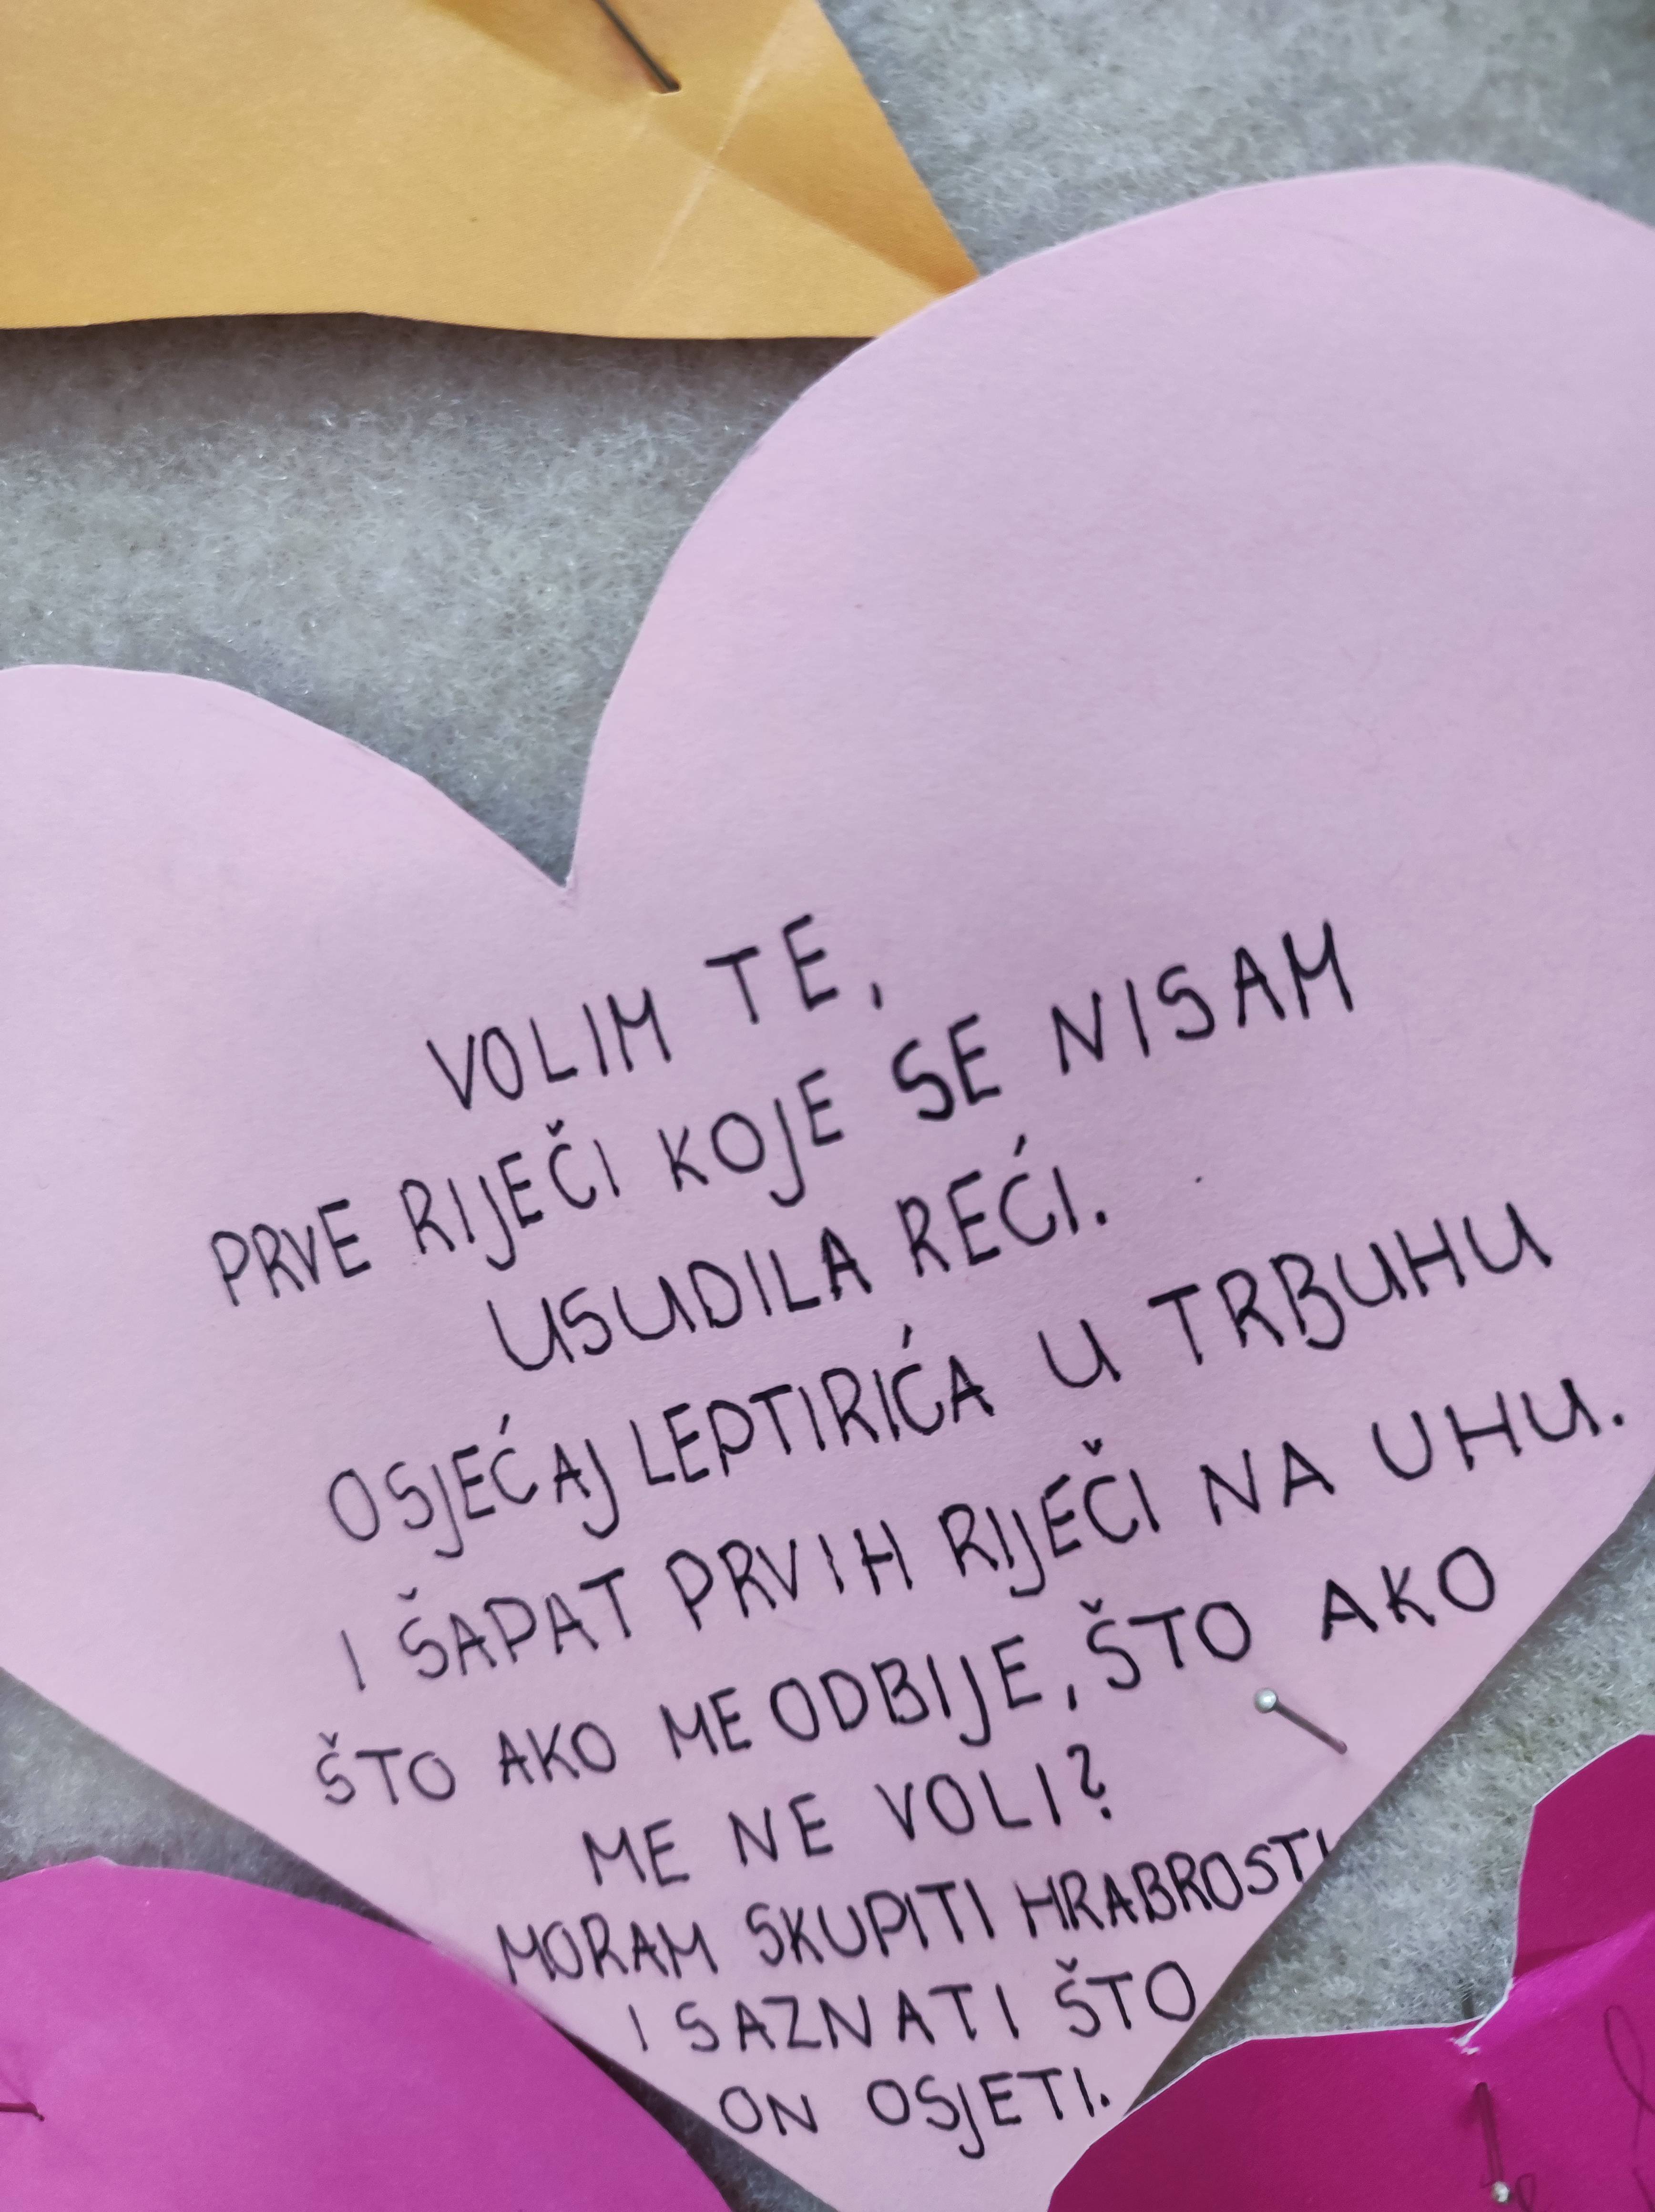 VOLIM TE,
PRVE RIJEČI KOJE SE NISAM
USUDILA REĆI.
OSJEĆAJ LEPTIRIĆA U TRBUHU
I ŠAPAT PRVIH RIJEČI NA UHU.
ŠTO AKO ME ODBIJE, ŠTO AKO
ME NE VOLI?
MORAM SKUPITI HRABROSTI
I SAZNATI ŠTO
ON OSJETI.